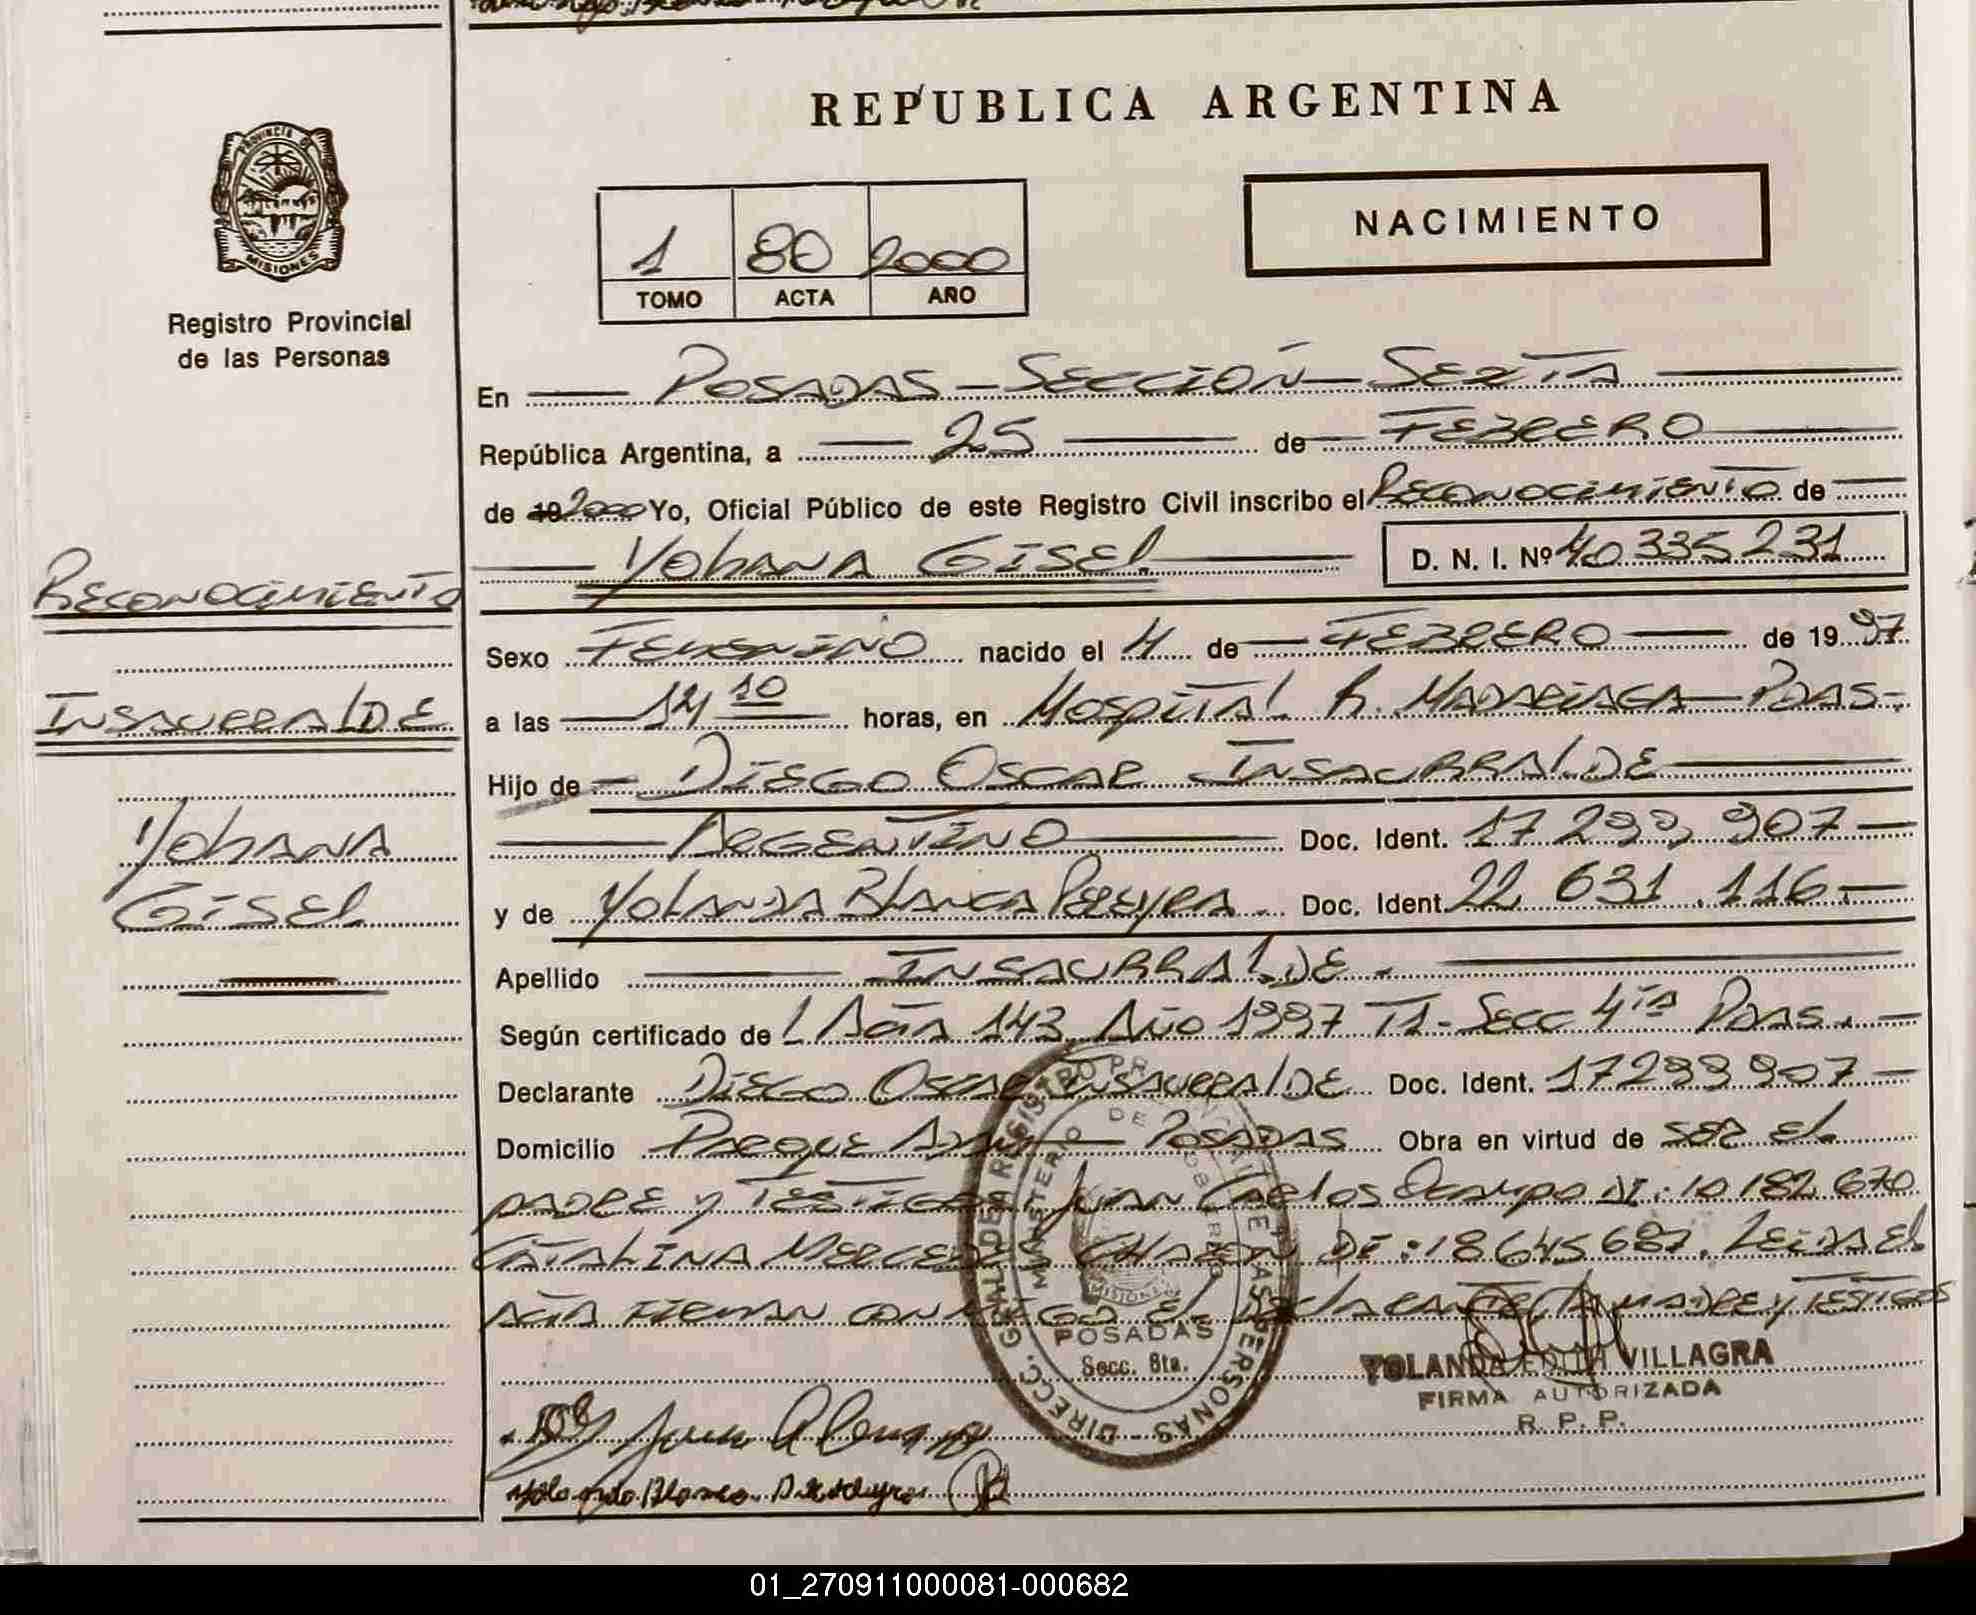 REPUBLICA ARGENTINA
PROVINCIA DE
MISIONES
Registro Provincial
de las Personas
NACIMIENTO
1 80 2000
TOMO ACTA AÑO
En POSADAS - SECCIÓN - SEXTA
República Argentina, a 25 de FEBRERO
de 19 2000 Yo, Oficial Público de este Registro Civil inscribo el RECONOCIMIENTO de
YOhANA GISEL D. N. I. Nº 40 335 231
RECONOCIMIENTO
INSAURRALDE
YOhANA
GISEL
Sexo FEMENINO nacido el 4 de FEBRERO de 19 97
a las 14 10 horas, en HOSPITAL R. MADARIAGA - PDAS.
Hijo de DIEGO OSCAR INSAURRALDE
ARGENTINO Doc. Ident. 17 299 907
y de YOLANDA BLANCA PEREYRA. Doc. Ident. 22 631.116
Apellido INSAURRALDE.
Según certificado de ! ACTA 143 AÑO 1997 T1 - SECC 4TA PDAS.
Declarante DIEGO OSCAR INSAURRALDE Doc. Ident. 17299907
Domicilio PARQUE POSADAS Obra en virtud de SER EL
PADRE Y TESTIGOS JUAN CARLOS OCAMPO DI: 10 182 670
CATALINA MERCEDES DI: 18645687. LEIDA EL
ACTA FIRMAN CONMIGO EL DECLARANTE LA MADRE Y TESTIGOS
DIRECC. GRAL DEL REGISTRO PROVINCIAL DE LAS PERSONAS
MINISTERIO DE GOBIERNO
MISIONES
POSADAS
Secc. 6ta.
YOLANDA EDITH VILLAGRA
FIRMA AUTORIZADA
R. P. P.
01_270911000081-000682